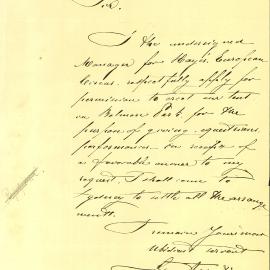 Sir.
I the undersigned
Manager for Hayes European
Circus. respectfully apply for
permission to erect our tent
in Belmore Park. for the
purpose of giving equestrian
performances. On receipt of
a favorable answer to my
request. I shall come to
Sydney to settle all the arrange
ments.
I remain Yours most
obedient servant